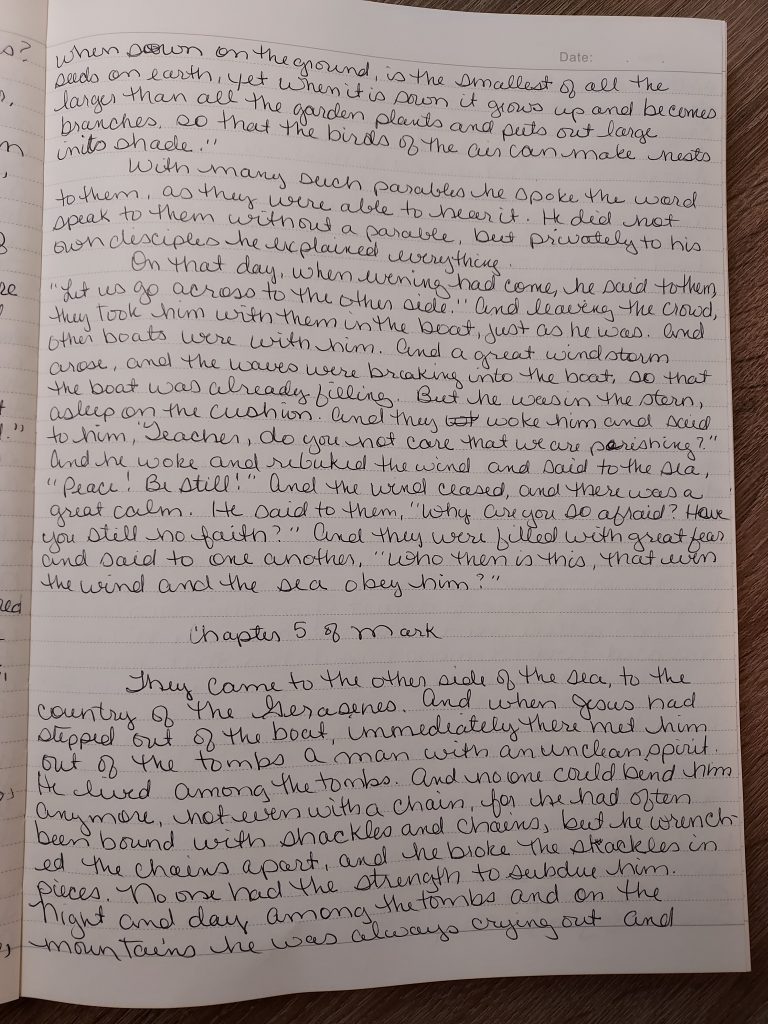 Date:
s?
when sown on the ground, is the smallest of all the
seeds on earth, yet when it is sown it grows up and becomes
larger than all the garden plants and puts out large
branches, so that the birds of the air can make nests
into shade."
With many such parables he spoke the word
to them, as they were able to hear it. He did not
speak to them without a parable, but privately to his
own disciples he explained everything.
On that day, when evening had come, he said to them,
"Let us go across to the other side." And leaving the crowd,
they took him with them in the boat, just as he was. And
other boats were with him. And a great windstorm
arose, and the waves were breaking into the boat, so that
the boat was already filling. But he was in the stern,
asleep on the cushion. And they woke him and said
to him, "Teacher, do you not care that we are perishing?"
And he woke and rebuked the wind and said to the sea,
"Peace! Be still!" And the wind ceased, and there was a
great calm. He said to them, "Why are you so afraid? Have
you still no faith?" And they were filled with great fear
and said to one another, "Who then is this, that even
the wind and the sea obey him?"
Chapter 5 of Mark
They came to the other side of the sea, to the
country of the Gerasenes. And when Jesus had
stepped out of the boat, immediately there met him
out of the tombs a man with an unclean spirit.
He lived among the tombs. And no one could bend him
anymore, not even with a chain, for he had often
been bound with shackles and chains, but he wrench-
ed the chains apart, and he broke the shackles in
pieces. No one had the strength to subdue him.
Night and day among the tombs and on the
mountains he was always crying out and